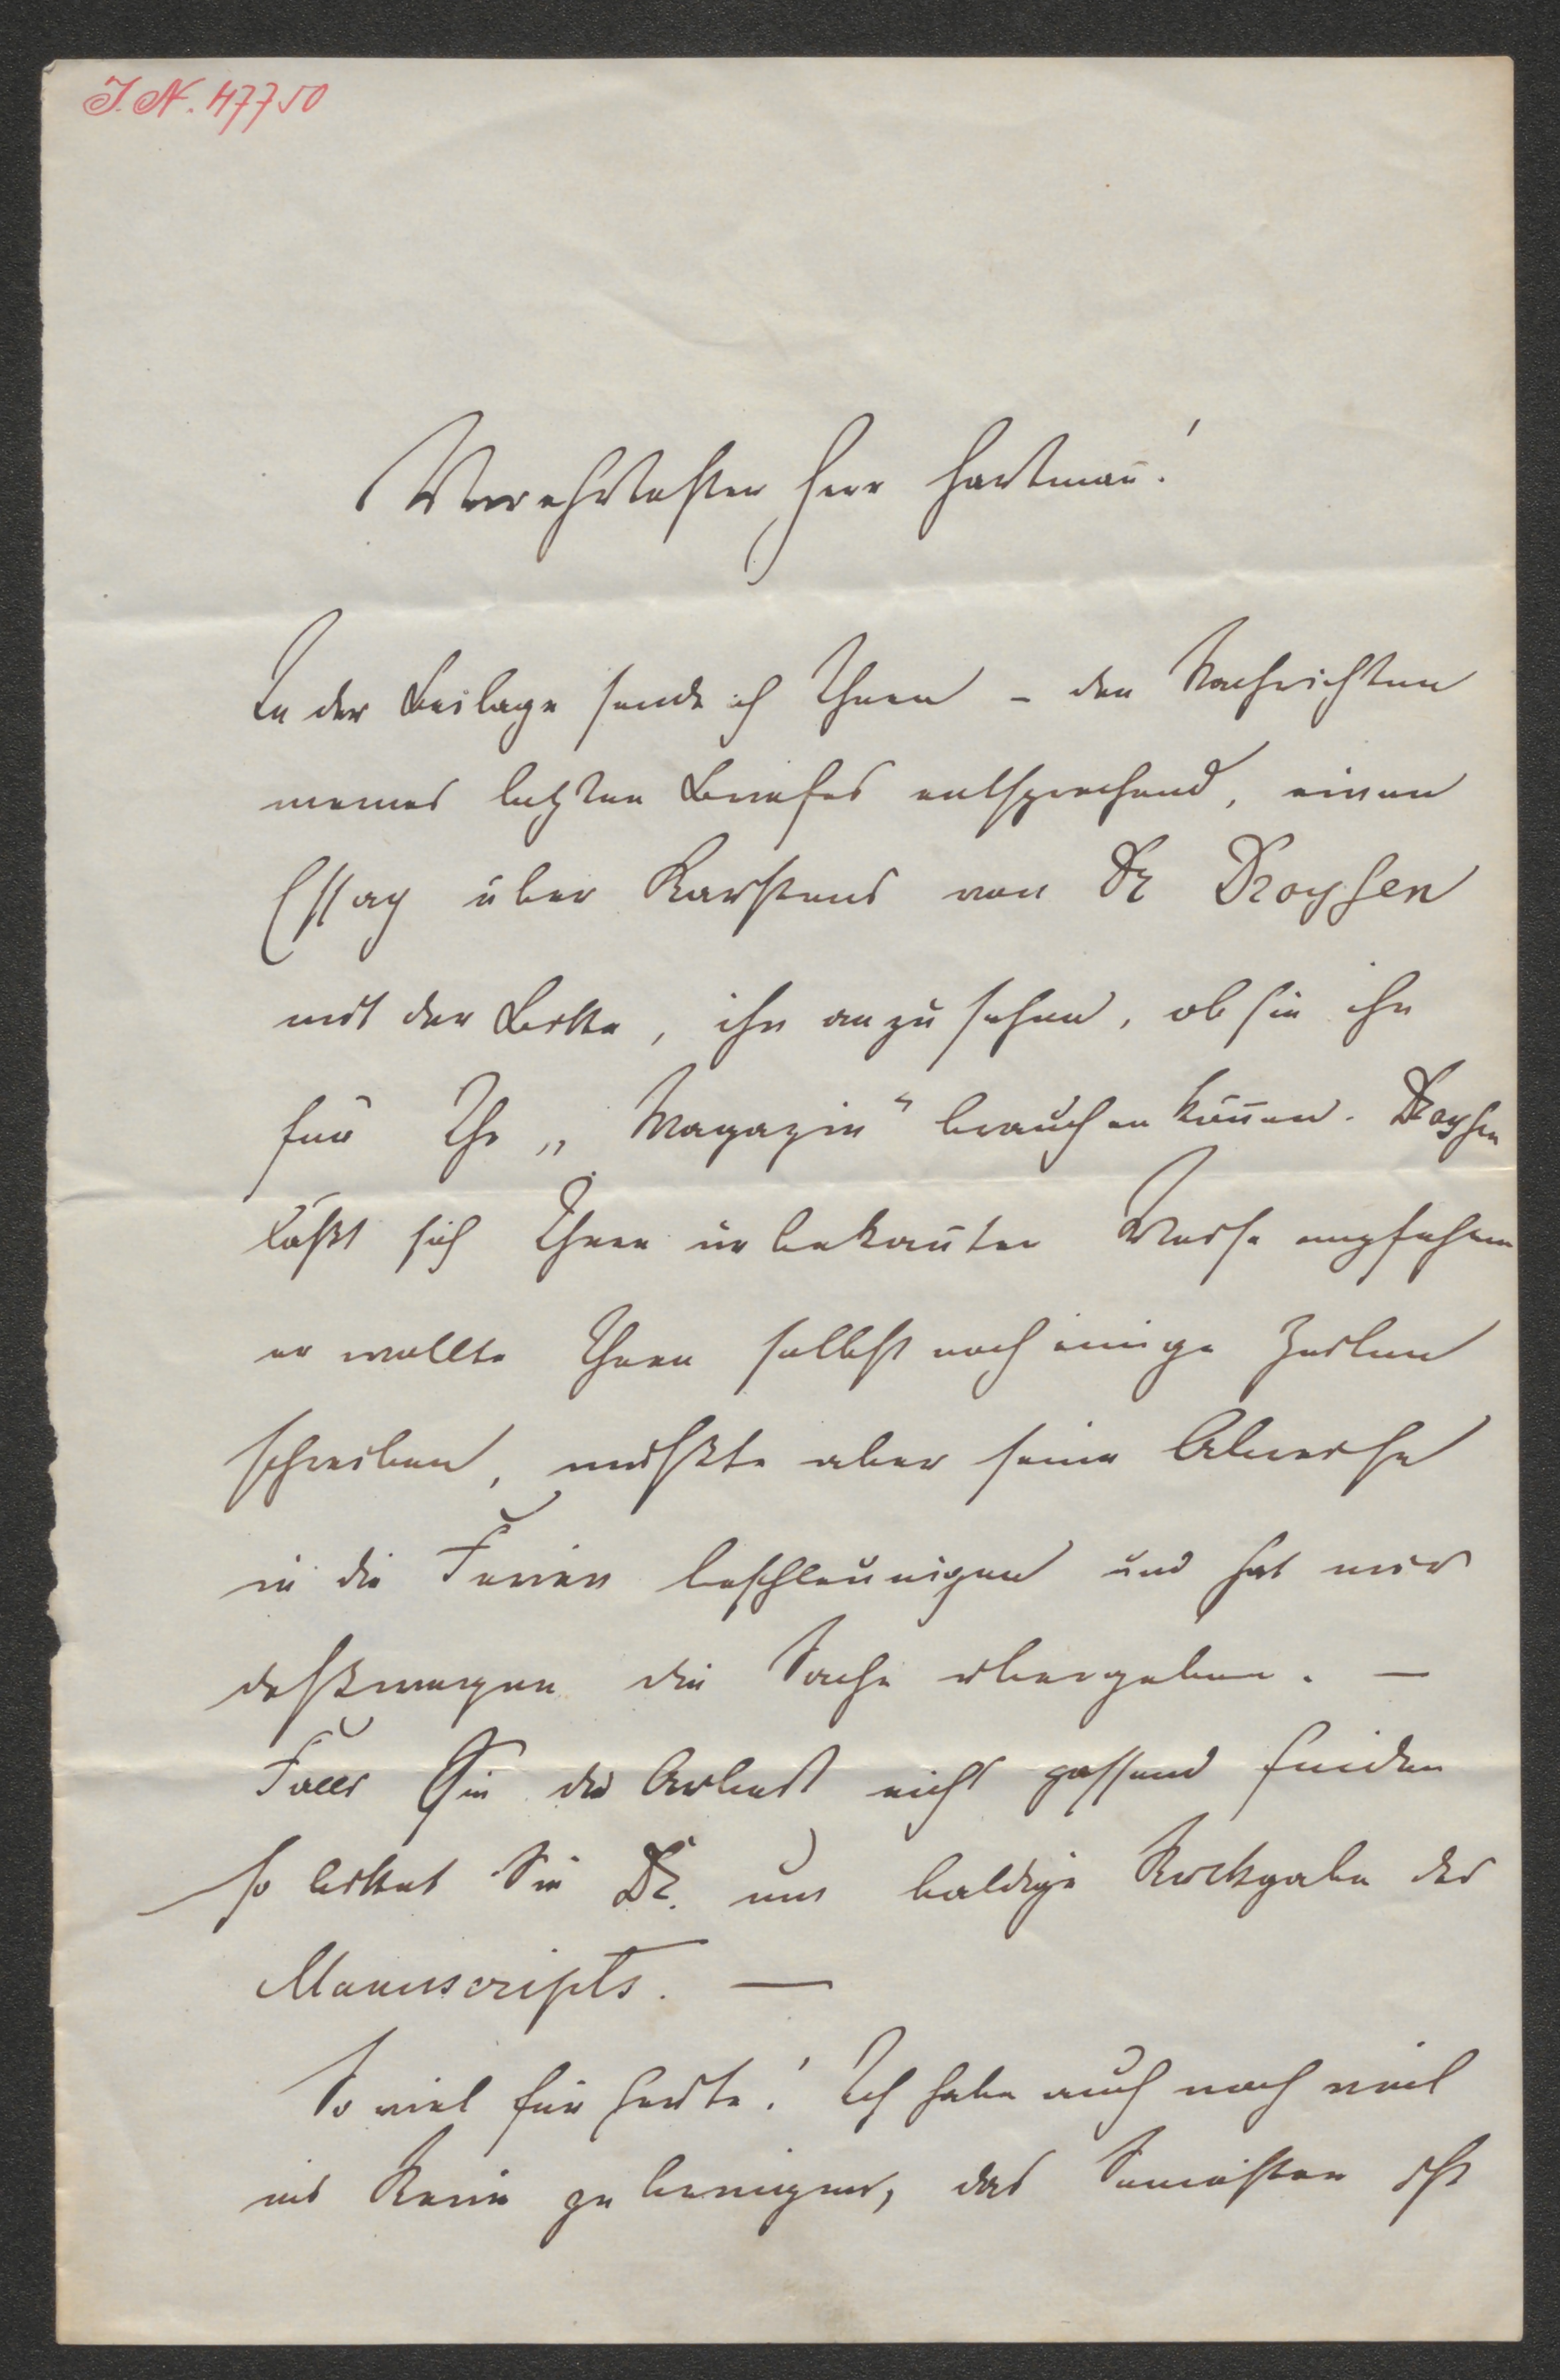 I. N. 47750
Verehrtester Herr Hartmañ!
In der Beilage sende ich Ihnen – den Nachrichten
meines letzten Briefes entsprechend, einen
Essay über Karstens von Dr Droysen
mit der Bitte, ihn anzusehen, ob sie ihn
für Ihr „Magazin“ brauchen köñen. Droysen
läßt sich Ihnen in bekañter Weise empfehlen
er wollte Ihnen selbst noch einige Zeilen
schreiben, mußte aber seine Abreise
in die Ferien beschleunigen und hat mir
deßwegen die Sache übergeben. —
Falls Sie die Arbeit nicht passend finden
so bittet Sie Dr. um baldige Rückgabe des
Manuscripts. —
So viel für heute! Ich habe auch noch viel
ins Reine zu bringen, das Semester ist